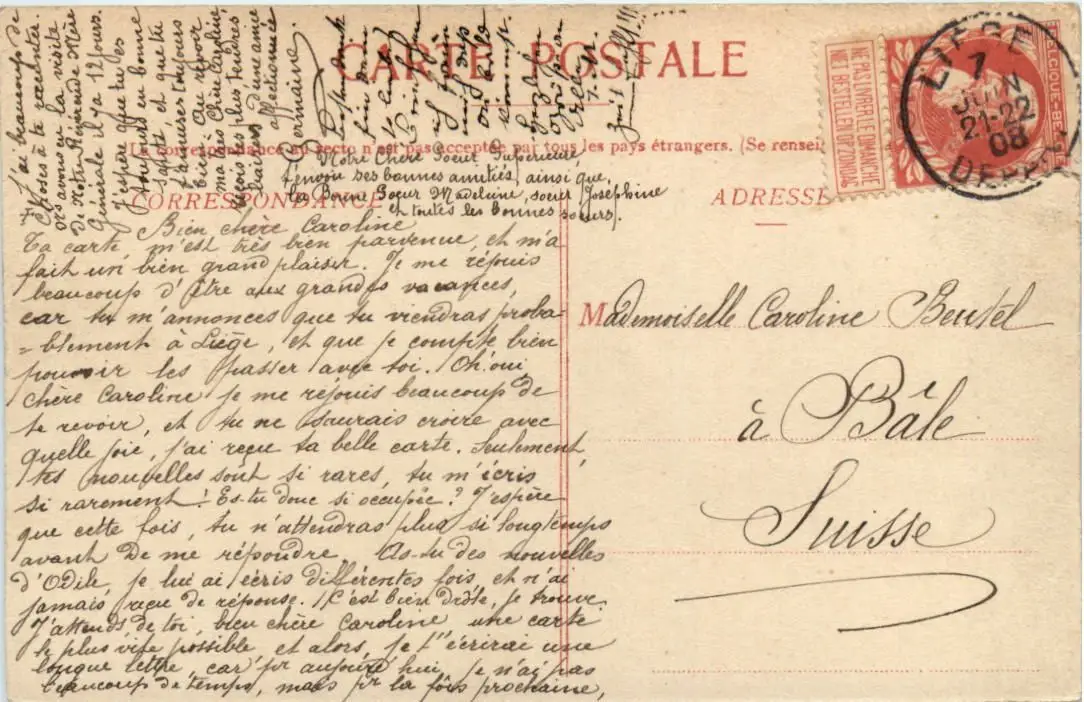 CARTE POSTALE
La correspondance au recto n'est pas acceptée par tous les pays étrangers. (Se rensei
CORRESPONDANCE
ADRESSE
NE PAS LIVRER LE DIMANCHE
NIET BESTELLEN OP ZONDAG
BELGIQUE-BE
LIEGE
7
JUIN
21-22
08
DEPART
Mademoiselle Caroline Beutel
à Bâle
Suisse
Bien chère Caroline
Ta carte m'est très bien parvenue, et m'a
fait un bien grand plaisir. Je me réjouis
beaucoup d'être aux grandes vacances,
car tu m'annonces que tu viendras proba-
=blement à Liège, et que je compte bien
pouvoir les passer avec toi. Oh! oui,
chère Caroline je me réjouis beaucoup de
te revoir, et tu ne saurais croire avec
quelle joie, j'ai reçu ta belle carte. Seulement,
tes nouvelles sont si rares, tu m'écris
si rarement! Es-tu donc si occupée? J'espère
que cette fois, tu n'attendras plus si longtemps
avant de me répondre. As-tu des nouvelles
d'Odile, je lui ai écris différentes fois, et n'ai
jamais reçu de réponse. C'est bien drôle, je trouve.
J'attends de toi, bien chère Caroline une carte
le plus vite possible, et alors, je t'écrirai une
longue lettre, car pr aujourd'hui, je n'ai pas
beaucoup de temps, mais pr la fois prochaine,
J'ai beaucoup de
choses à te raconter.
Ns avons eu la visite
de Notre Révérende Mère
Générale il y a 12 jours.
J'espère que tu es
toujours en bonne
santé et que tu
t'amuses toujours
bien. Au revoir
ma très chère Caroline
reçois les plus tendres
baisers d'une amie
affectionnée
Germaine.
Notre Chère Soeur Supérieure,
t'envoie ses bonnes amitiés, ainsi que
la Bonne Soeur Madeleine, soeur Joséphine
et toutes les bonnes soeurs.